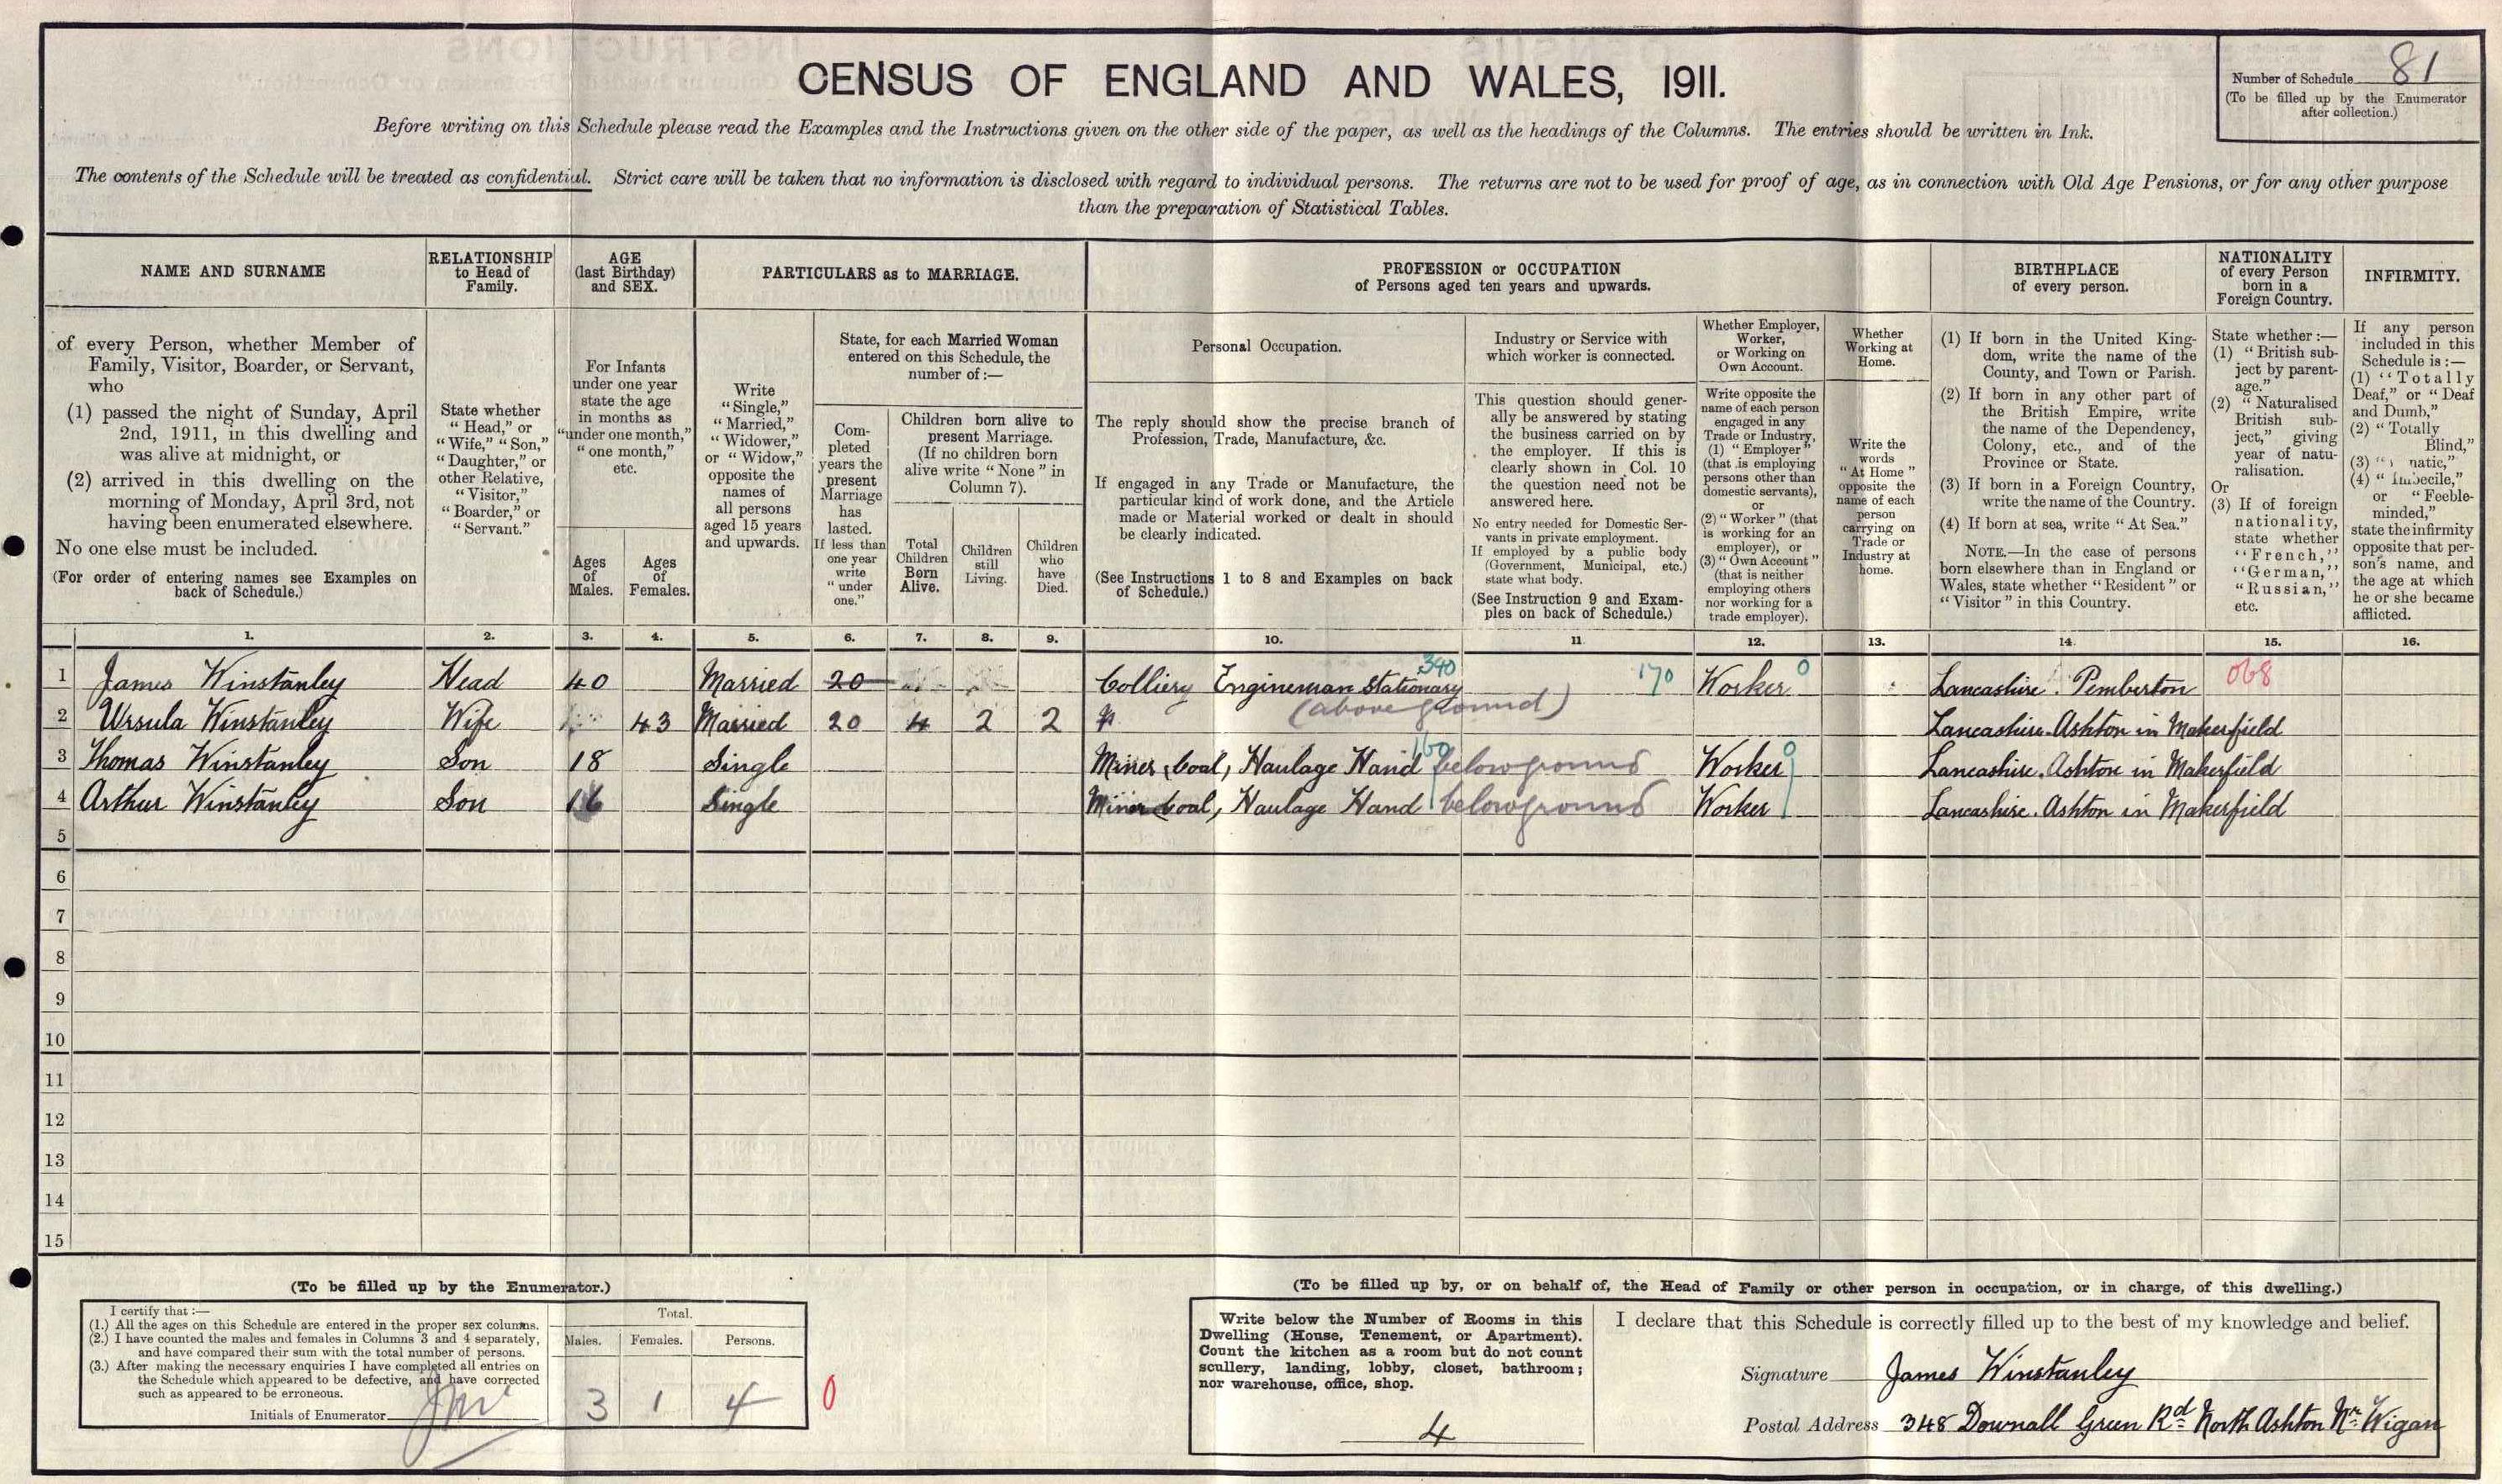 CENSUS OF ENGLAND AND WALES, 1911.
Number of Schedule 81
(To be filled up by the Enumerator
after collection.)
Before writing on this Schedule please read the Examples and the Instructions given on the other side of the paper, as well as the headings of the Columns. The entries should be written in Ink.
The contents of the Schedule will be treated as confidential. Strict care will be taken that no information is disclosed with regard to individual persons. The returns are not to be used for proof of age, as in connection with Old Age Pensions, or for any other purpose
than the preparation of Statistical Tables.
NAME AND SURNAME
RELATIONSHIP
to Head of
Family.
AGE
(last Birthday)
and SEX.
PARTICULARS as to MARRIAGE.
PROFESSION or OCCUPATION
of Persons aged ten years and upwards.
BIRTHPLACE
of every person.
NATIONALITY
of every Person
born in a
Foreign Country.
INFIRMITY.
of every Person, whether Member of
Family, Visitor, Boarder, or Servant,
who
(1) passed the night of Sunday, April
2nd, 1911, in this dwelling and
was alive at midnight, or
(2) arrived in this dwelling on the
morning of Monday, April 3rd, not
having been enumerated elsewhere.
No one else must be included.
(For order of entering names see Examples on
back of Schedule.)
State whether
"Head," or
"Wife," "Son,"
"Daughter," or
other Relative,
"Visitor,"
"Boarder," or
"Servant."
For Infants
under one year
state the age
in months as
"under one month,"
"one month,"
etc.
Ages
of
Males.
Ages
of
Females.
Write
"Single,"
"Married,"
"Widower,"
or "Widow,"
opposite the
names of
all persons
aged 15 years
and upwards.
State, for each Married Woman
entered on this Schedule, the
number of:—
Com-
pleted
years the
present
Marriage
has
lasted.
If less than
one year
write
"under
one."
Children born alive to
present Marriage.
(If no children born
alive write "None" in
Column 7).
Total
Children
Born
Alive.
Children
still
Living.
Children
who
have
Died.
Personal Occupation.
The reply should show the precise branch of
Profession, Trade, Manufacture, &c.
If engaged in any Trade or Manufacture, the
particular kind of work done, and the Article
made or Material worked or dealt in should
be clearly indicated.
(See Instructions 1 to 8 and Examples on back
of Schedule.)
Industry or Service with
which worker is connected.
This question should gener-
ally be answered by stating
the business carried on by
the employer. If this is
clearly shown in Col. 10
the question need not be
answered here.
No entry needed for Domestic Ser-
vants in private employment.
If employed by a public body
(Government, Municipal, etc.)
state what body.
(See Instruction 9 and Exam-
ples on back of Schedule.)
Whether Employer,
Worker,
or Working on
Own Account.
Write opposite the
name of each person
engaged in any
Trade or Industry,
(1) "Employer"
(that is employing
persons other than
domestic servants),
or
(2) "Worker" (that
is working for an
employer), or
(3) "Own Account"
(that is neither
employing others
nor working for a
trade employer).
Whether
Working at
Home.
Write the
words
"At Home"
opposite the
name of each
person
carrying on
Trade or
Industry at
home.
(1) If born in the United King-
dom, write the name of the
County, and Town or Parish.
(2) If born in any other part of
the British Empire, write
the name of the Dependency,
Colony, etc., and of the
Province or State.
(3) If born in a Foreign Country,
write the name of the Country.
(4) If born at sea, write "At Sea."
NOTE.—In the case of persons
born elsewhere than in England or
Wales, state whether "Resident" or
"Visitor" in this Country.
State whether:—
(1) "British sub-
ject by parent-
age."
(2) "Naturalised
British sub-
ject," giving
year of natu-
ralisation.
Or
(3) If of foreign
nationality,
state whether
"French,"
"German,"
"Russian,"
etc.
If any person
included in this
Schedule is:—
(1) "Totally
Deaf," or "Deaf
and Dumb,"
(2) "Totally
Blind,"
(3) natic,"
(4) "Imbecile,"
or "Feeble-
minded,"
state the infirmity
opposite that per-
son's name, and
the age at which
he or she became
afflicted.
1. 2. 3. 4. 5. 6. 7. 8. 9. 10. 11 12. 13. 14. 15. 16.
1 James Winstanley Head 40 Married 20 Colliery Engineman Stationary 390 170 Worker 0 Lancashire. Pemberton 068
(above ground)
2 Ursula Winstanley Wife 43 Married 20 4 2 2 Lancashire. Ashton in Makerfield
3 Thomas Winstanley Son 18 Single Miner, Coal, Haulage Hand 160 below ground Worker 0 Lancashire. Ashton in Makerfield
4 Arthur Winstanley Son 16 Single Miner Coal, Haulage Hand below ground Worker Lancashire. Ashton in Makerfield
5
6
7
8
9
10
11
12
13
14
15
(To be filled up by the Enumerator.)
I certify that:—
(1.) All the ages on this Schedule are entered in the proper sex columns.
(2.) I have counted the males and females in Columns 3 and 4 separately,
and have compared their sum with the total number of persons.
(3.) After making the necessary enquiries I have completed all entries on
the Schedule which appeared to be defective, and have corrected
such as appeared to be erroneous.
Initials of Enumerator
Total.
Males. Females. Persons.
3 1 4 0
(To be filled up by, or on behalf of, the Head of Family or other person in occupation, or in charge, of this dwelling.)
Write below the Number of Rooms in this
Dwelling (House, Tenement, or Apartment).
Count the kitchen as a room but do not count
scullery, landing, lobby, closet, bathroom;
nor warehouse, office, shop.
4
I declare that this Schedule is correctly filled up to the best of my knowledge and belief.
Signature James Winstanley
Postal Address 348 Downall Green Rd North Ashton Nr Wigan